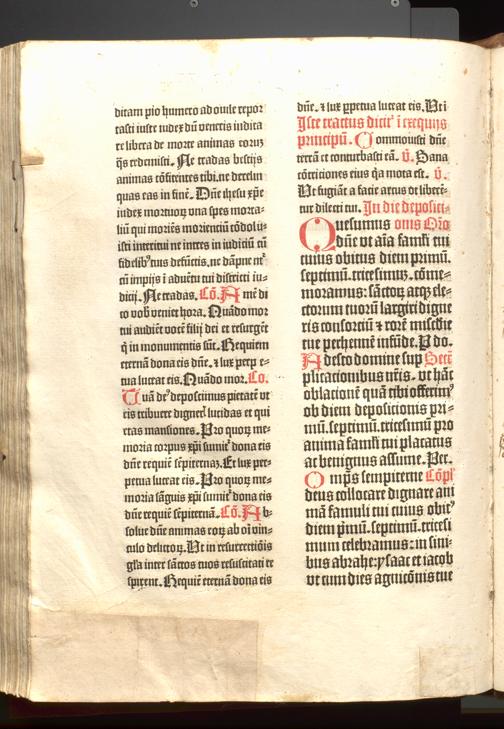 ditam pio humero ad ouile repor
tasti iuste iudex dn̄ venetis iudica
re libera de morte animas eoruꝫ
q̄s redemisti. Ne tradas bestijs
animas cōfitentes tibi. ne derelin
quas eas in finē. Dn̄e ihesu xp̄e
iudex mortuoꝝ vna spes morta-
liū qui moriēs moriencīū cōdolu-
isti intercitui ne intres in iudiciū cū
fidelibꝰ tuis defūctis. ne dāpnetʳ
cū impijs ī aduētu tui districti iu-
dicij. Ne tradas. Cō. Amē di
co vob̄ veniet hora. Quādo mor
tui audiēt vocē filij dei et resurgēt
q̄ in monumentis sūt. Requiem
eternā dona eis dn̄e. ⁊ lux perpe-
tua luceat eis. Quādo mor. Co.
Tuam deꝰ deposcimus pietatē vt
eis tribuere digneʳ lucidas et qui
etas mansiones. Pro quoꝝ me-
moria corpus xp̄i sumitʳ dona eis
dn̄e requiē sēpiternaꝫ. Et lux per-
petua luceat eis. Pro quoꝝ me-
moria sāguis xp̄i sumitʳ dona eis
dn̄e requiē sēpiternā. Cō. Ab-
solue dn̄e animas eoꝝ ab oī vin-
culo delictoꝝ. Vt in resurrectiōis
gl̄a inter sāctos tuos resuscitati re
spirent. Requiē eternā dona eis
dn̄e. ⁊ lux ꝑpetua luceat eis. Vt i
Iste tractus dicitʳ ī exequijs
principū. Commouisti dn̄e
terrā et conturbasti eā. ℣. Sana
cōtriciones eius q̄a mota est. ℣.
Vt fugiāt a facie arcus vt liberē-
tur dilecti tui. In die depositi-
Quesumus onis Or̄o
dn̄e vt aīa famłi tui
cuius obitus diem primū.
septimū. tricesimuꝫ. cōme-
moramus: sāctoꝝ atqꝫ ele-
ctorum tuorū largiri digne
ris consorciū ⁊ rorē miscd̄ie
tue perhennē infūde. P do.
Adesto domine sup Secr̄
plicationibus nr̄is. vt hāc
oblacionē quā tibi offerimꝰ
ob diem deposicionis pri-
mū. septimū. tricesimū pro
anima famłi tui placatus
ac benignus assume. Per.
Omp̄s sempiterne Cōpł
deus collocare dignare ani
mā famuli tui cuius obitꝰ
diem p̄mū. septimū. tricesi
mum celebramus: in sinu-
bus abrahe: ysaac et iacob
vt cum dies agnicōnis tue